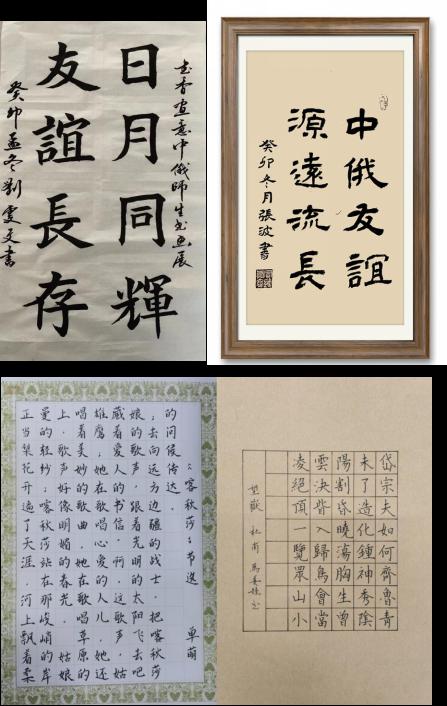 书香画意中俄師生书画展
日月同輝
友誼長存
癸卯孟冬劉雯文書
中俄友誼
源遠流長
癸卯冬月張波書
正当梨花开遍了天涯 河上飘着柔
曼的轻纱；喀秋莎站在那峻峭的岸
上，歌声好像明媚的春光。 姑娘
唱着美妙的歌曲，她在歌唱草原的
雄鹰；她在歌唱心爱的人儿，她还
藏着爱人的书信。 啊，这歌声，姑
娘的歌声，跟着光明的太阳飞去吧
；去向远方边疆的战士，把喀秋莎
的问候传达。
《喀秋莎》节选 单萌
岱宗夫如何齊魯青
未了造化鍾神秀陰
陽割昏曉蕩胸生曾
雲決眥入歸鳥會當
凌絕頂一覽眾山小
望嶽 杜甫